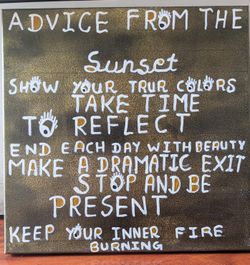 ADVICE FROM THE
Sunset
SHOW YOUR TRUR COLORS
TAKE TIME
TO REFLECT
END EACH DAY WITH BEAUTY
MAKE A DRAMATIC EXIT
STOP AND BE
PRESENT
KEEP YOUR INNER FIRE
BURNING